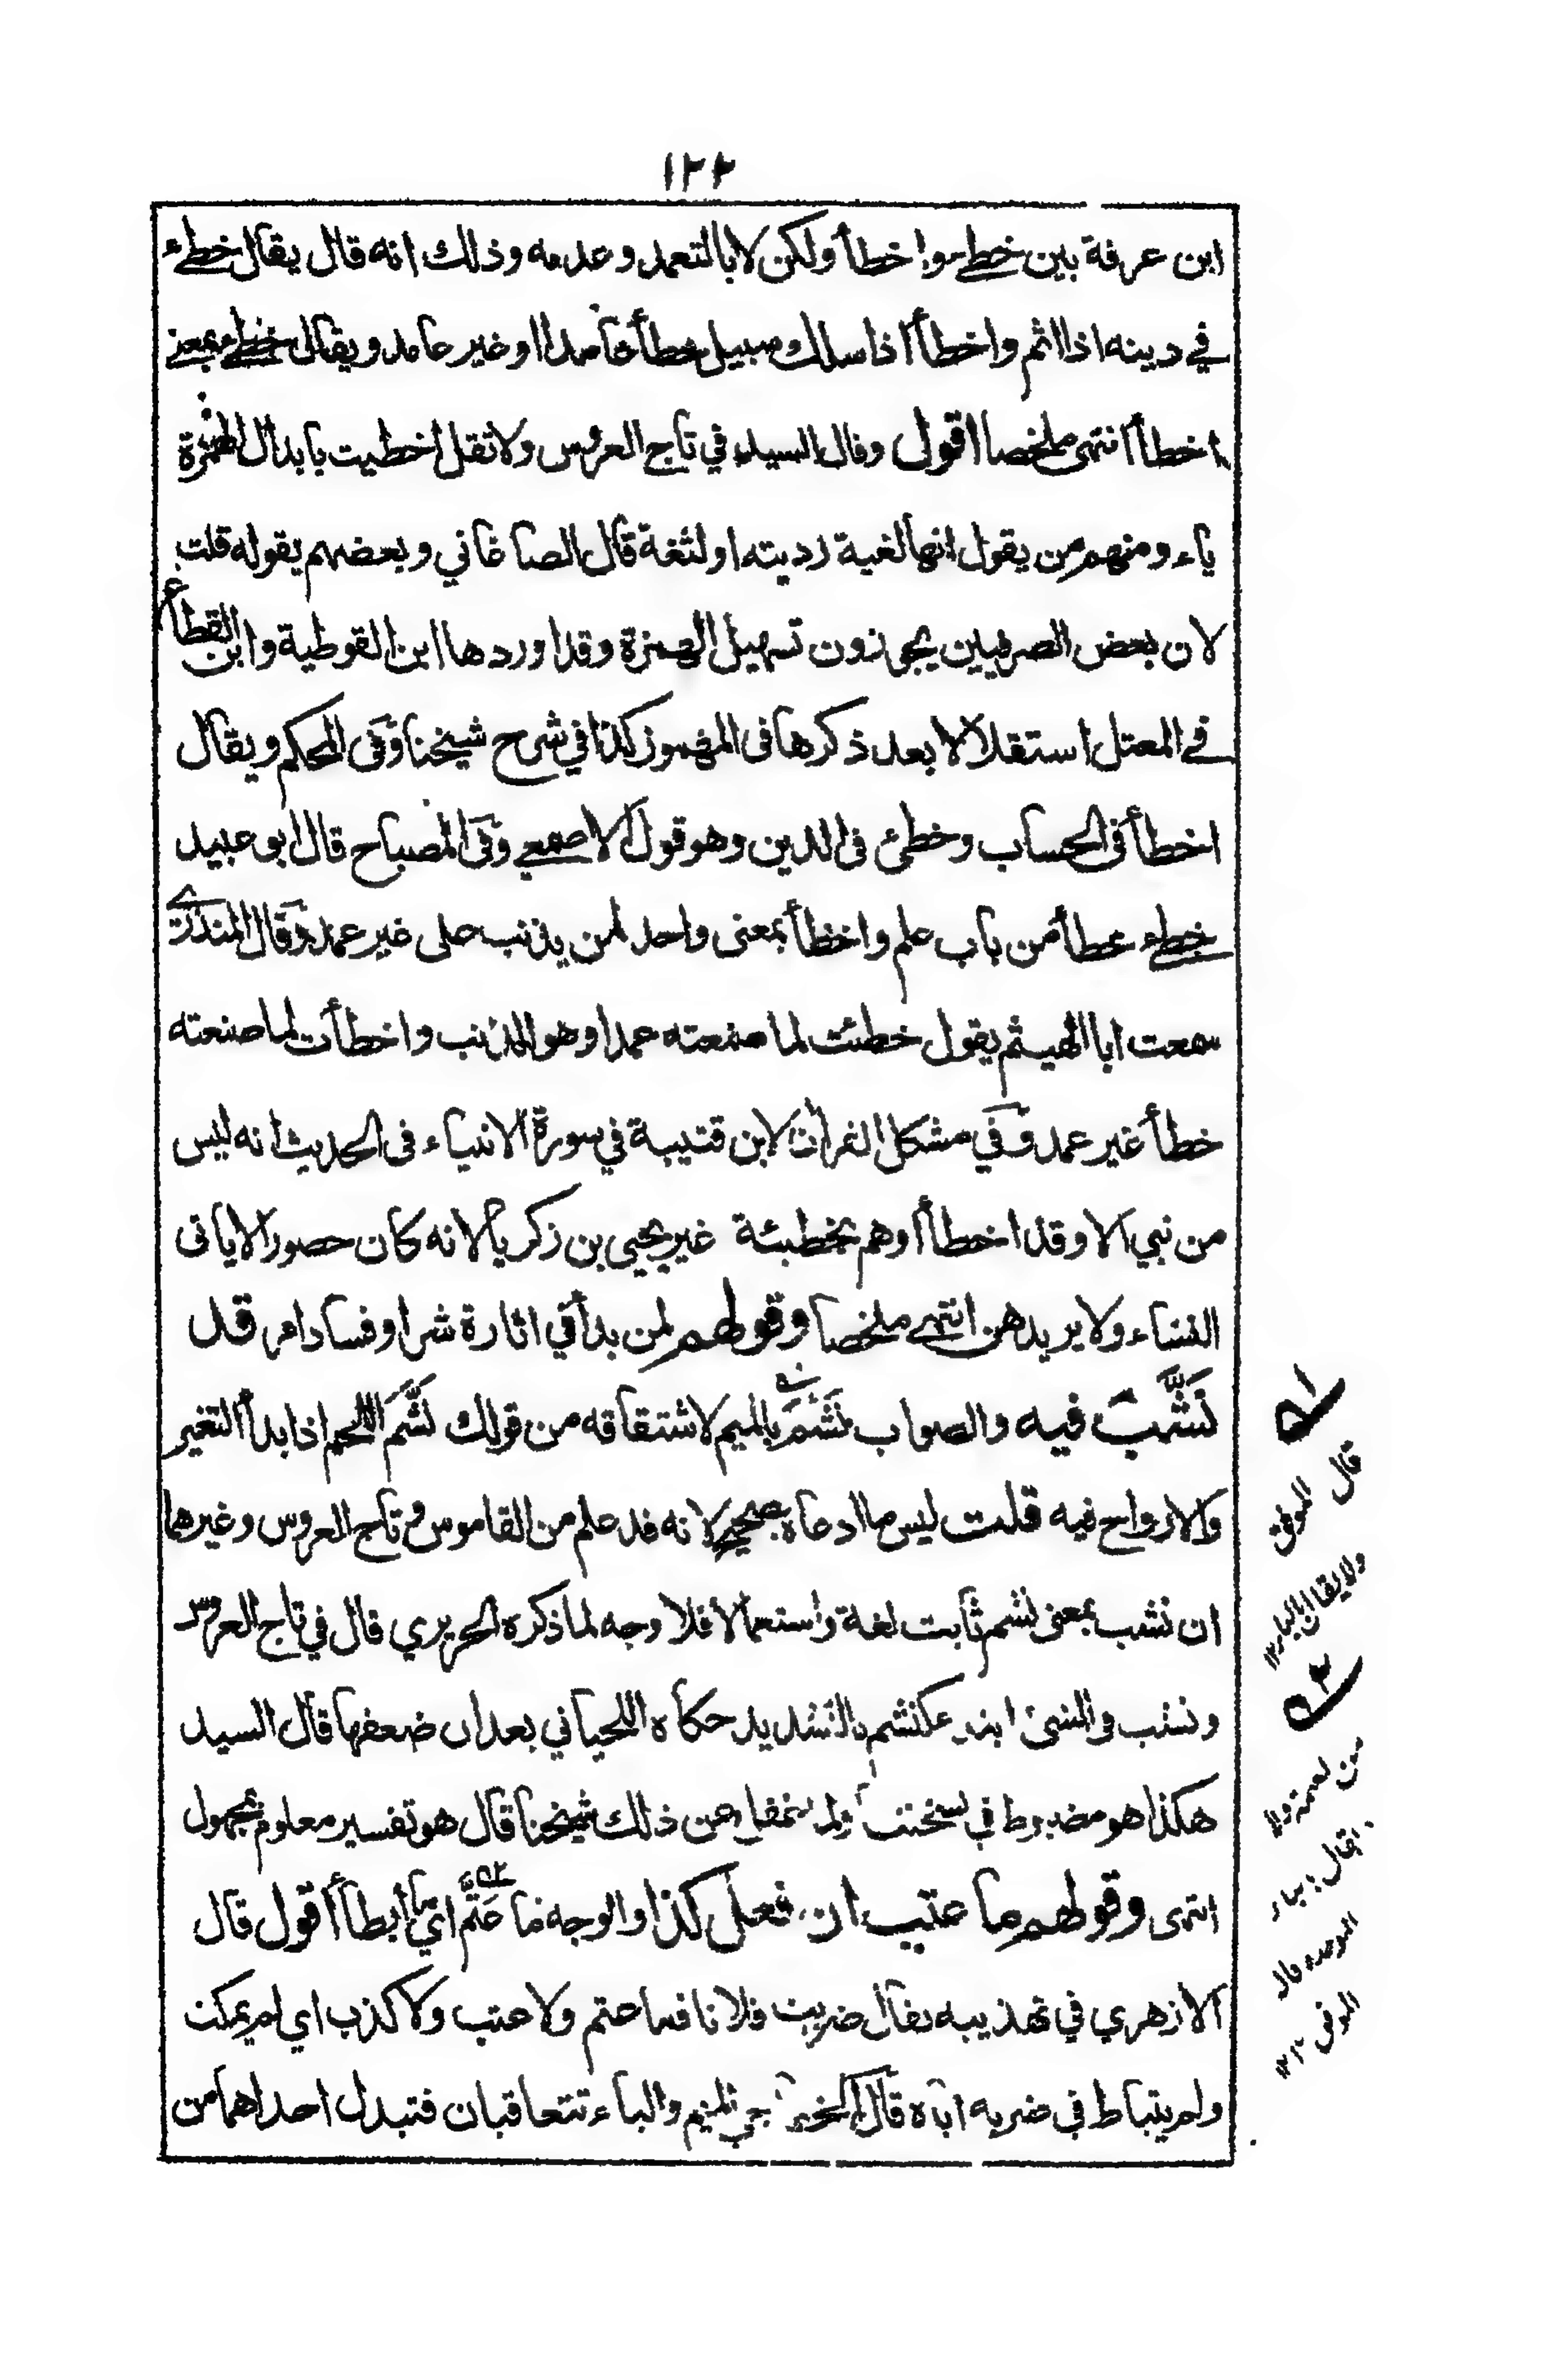 ١٢٢
ابن عرفة بين خطئ واخطأ ولكن لا بالتعمد وعدمه وذلك انه قال يقال خطئ
في دينه اذا اثم واخطأ اذا سلك سبيل خطأ عامدا او غير عامد ويقال خطئ بمعنى
اخطأ انتهى ملخصا اقول وقال السيد في تاج العروس ولا تقل اخطيت بابدال الهمزة
ياء ومنهم من يقول انها لغية رديته او لثغة قال الصاغاني وبعضهم يقوله قلت
لان بعض الصرفيين يجوزون تسهيل الهمزة وقد اوردها ابن القوطية وابن القطاع
في المعتل استقلالا بعد ذكرها في المهموز كذا في شرح شيخنا وفي المحكم ويقال
اخطأ في الحساب وخطئ في الدين وهو قول الاصمعي وفي المصباح قال ابو عبيد
خطئ خطأ من باب علم واخطأ بمعنى واحد لمن يذنب على غير عمد وقال المنذري
سمعت ابا الهيثم يقول خطئت لما صنعته عمدا وهو الذنب واخطأت لما صنعته
خطأ غير عمد وفي مشكل القرآن لابن قتيبة في سورة الانبياء في الحديث انه ليس
من نبي الا وقد اخطأ او هم بخطيئة غير يحيى بن زكريا لانه كان حصورا لا ياتي
النساء ولا يريدهن انتهى ملخصا وقولهم لمن بدأ في اثارة شر او فساد امر قد
نَشَّبَ فيه والصواب نَشَّمَ بالميم لاشتقاقه من قولك نَشَّمَ اللحم اذا بدأ التغير
والارواح فيه قلت ليس ما ادعاه بصحيح لانه قد علم من القاموس وتاج العروس وغيرهما
ان نشب بمعنى نشم ثابت لغة واستعمالا فلا وجه لما ذكره الحريري قال في تاج العروس
ونشب في الشئ ابتدء كنشم بالتشديد حكاه اللحياني بعد ان ضعفها قال السيد
هكذا هو مضبوط في نسختنا عن ذلك شيخنا قال هو تفسير معلوم بمجهول
انتهى وقولهم ما عتب ان فعل كذا والوجه ما عَتَّمَ اي ما أبطأ أقول قال
الازهري في تهذيبه يقال ضربت فلانا فما عتم ولا عتب ولا كذب اي لم يمكث
ولم يتباط في ضربه اياه قال الميم والباء تتعاقبان فتبدل احداهما من
قال الموفق
ولا يقال بالباء ١٢